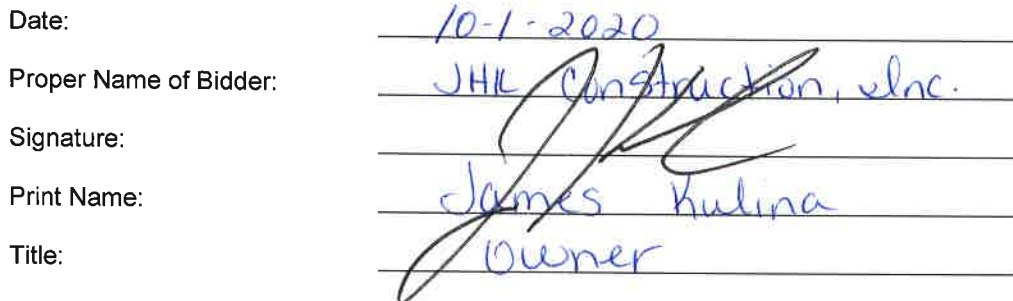 Date: 10-1-2020
Proper Name of Bidder: JHK Construction, Inc.
Signature:
Print Name: James Kulina
Title: Owner